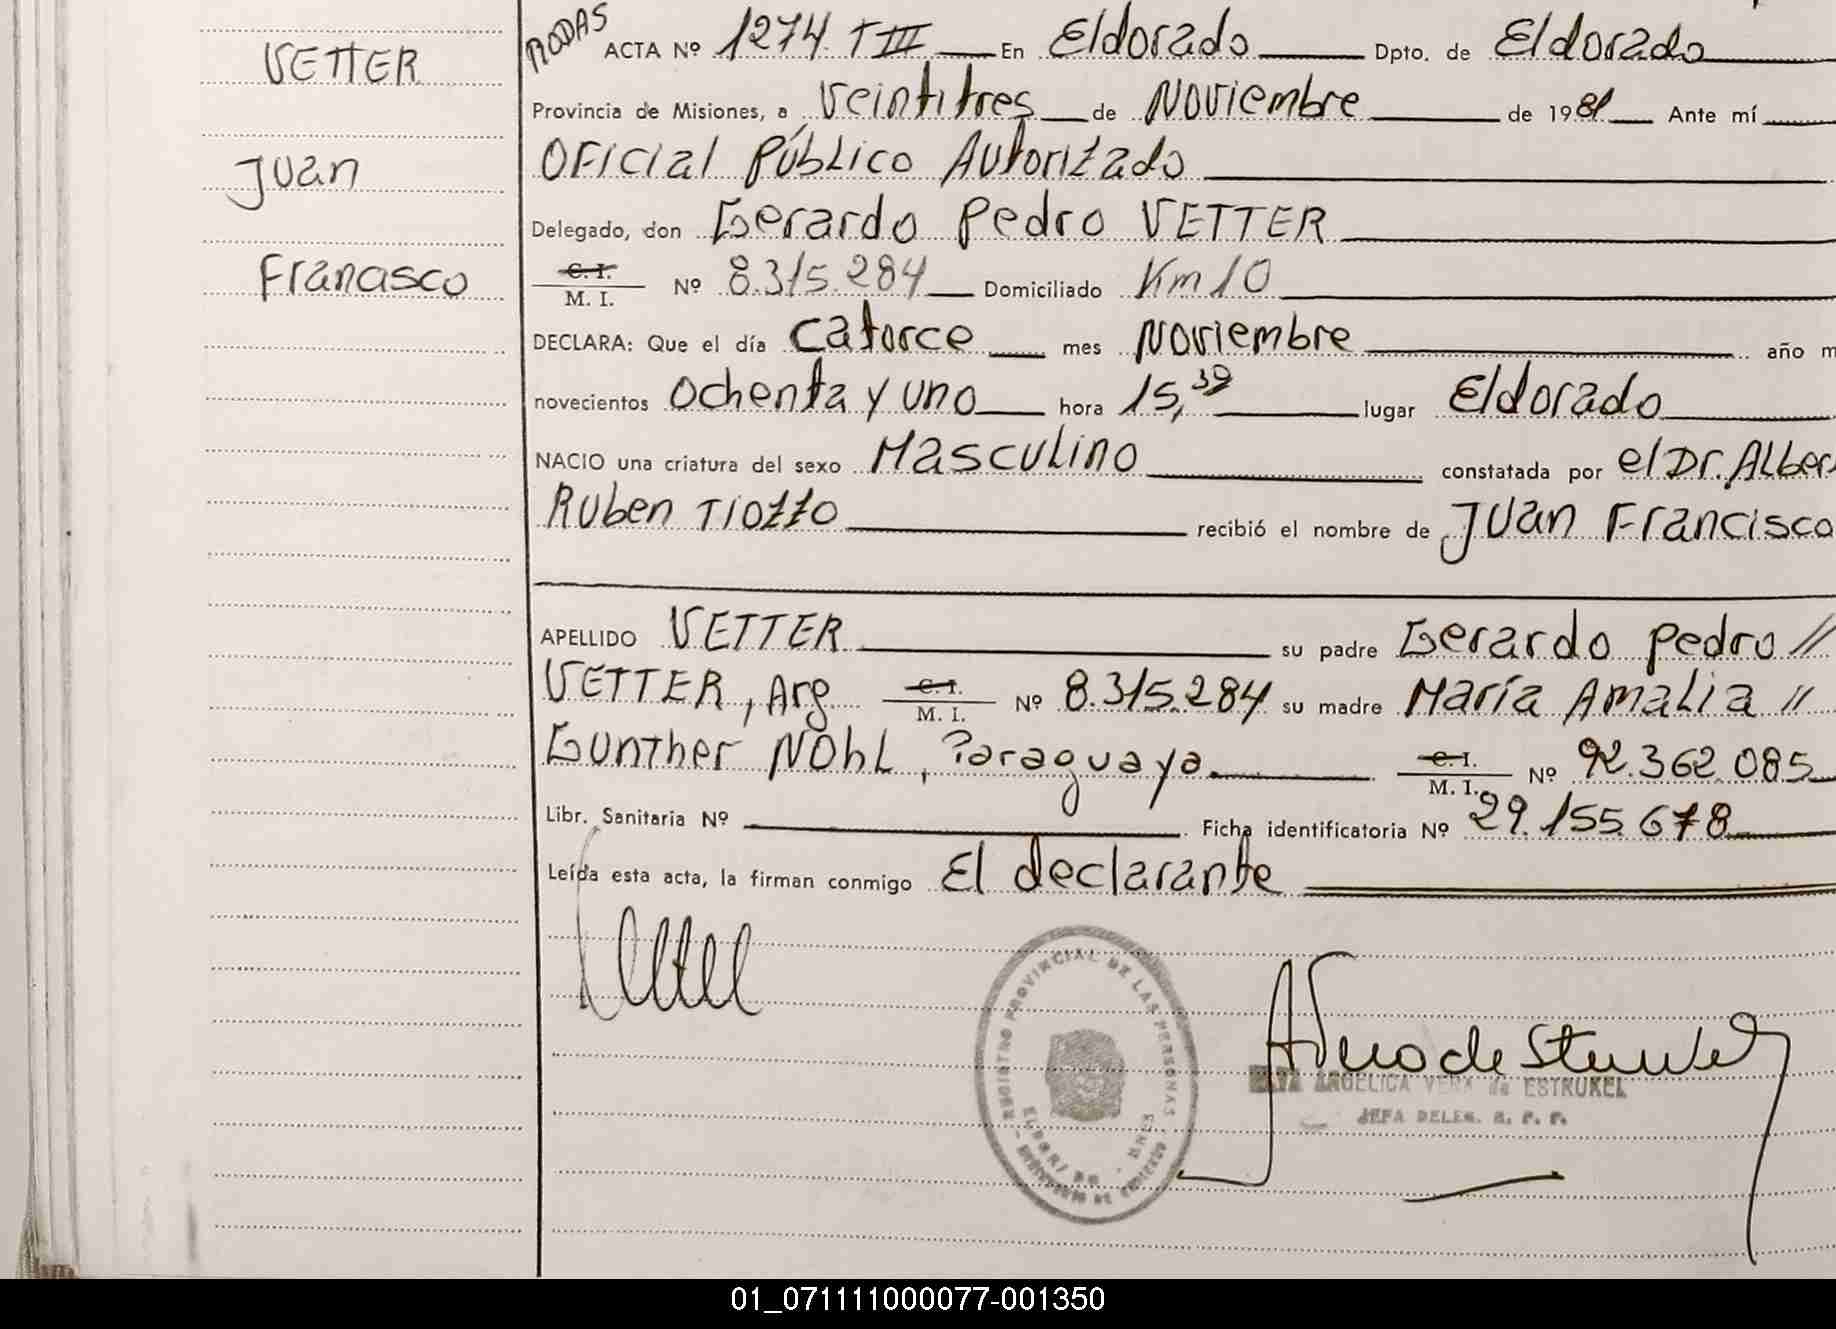 VETTER
Juan
Francisco
RODAS ACTA Nº 1274 T III En Eldorado Dpto. de Eldorado
Provincia de Misiones, a Veintitres de Noviembre de 1981 Ante mí
Oficial Público Autorizado
Delegado, don Gerardo Pedro VETTER
C. I. M. I. Nº 8.315.284 Domiciliado Km 10
DECLARA: Que el día catorce mes Noviembre año m
novecientos ochenta y uno hora 15,30 lugar Eldorado
NACIO una criatura del sexo Masculino constatada por el Dr. Alber
Ruben Tiozzo recibió el nombre de Juan Francisco
APELLIDO VETTER su padre Gerardo Pedro //
VETTER, Arg C. I. M. I. Nº 8.315.284 su madre María Amalia //
Gunther Nohl, Paraguaya C. I. M. I. Nº 92.362.085
Libr. Sanitaria Nº Ficha identificatoria Nº 29.155.678
Leída esta acta, la firman conmigo El declarante
REGISTRO PROVINCIAL DE LAS PERSONAS
ANGELICA VERA de ESTRUKEL
JEFA DELEG. R. P. P.
01_071111000077-001350